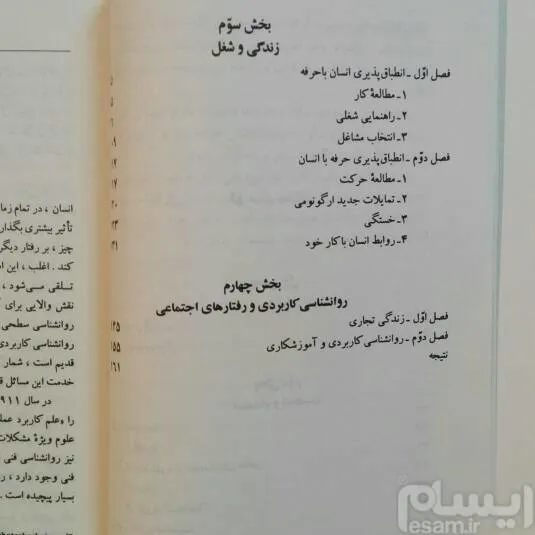 بخش سوّم
زندگی و شغل
فصل اوّل ـ انطباق‌پذیری انسان با حرفه
۱ـ مطالعهٔ کار
۲ـ راهنمایی شغلی
۳ـ انتخاب مشاغل
فصل دوّم ـ انطباق‌پذیری حرفه با انسان
۱ـ مطالعهٔ حرکت
۲ـ تمایلات جدید ارگونومی
۳ـ خستگی
۴ـ روابط انسان با کار خود
بخش چهارم
روانشناسی کاربردی و رفتارهای اجتماعی
فصل اوّل ـ زندگی تجاری
فصل دوم ـ روانشناسی کاربردی و آموزشکاری ۱۵۵
نتیجه ۱۶۱
انسان ، در تمام
تأثیر بیشتری
چیز ، بر رفتار
کند . اغلب ، این
تـلقی مـی‌شود ،
نقش والایی برای
روانشناسی سطحی
روانشناسی کاربردی
قدیم است ، شمار
خدمت این مسائل
در سال ۱۹۱۱
را «علم کاربرد
علوم ویژهٔ مشکلات
نیز روانشناسی فنی
فنی وجود دارد ،
بسیار پیچیده است .
ایسام
esam.ir